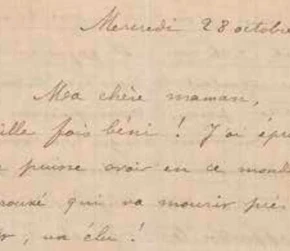 Mercredi 28 octobre
Ma chère maman,
ille fois béni ! J'ai épr
puisse avoir en ce mond
qui va mourir près
, un élu !